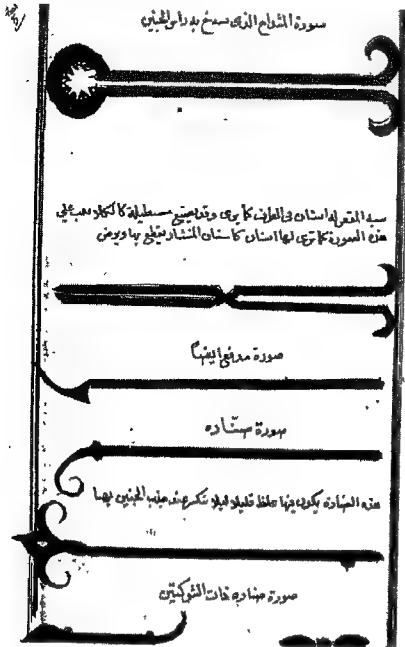 صورة المشداخ الذى يشدخ به راس الجنين
له اسنان فى الطرف كما ترى وقد يصنع مستطيلة كالكلاليب على
هذه الصورة كما ترى لها اسنان كاسنان المنشار يقطع بها ويرض
صورة مدفع ايضا
صورة صنّاره
هذه الصنارة يكون فيها غلظ قليلا ليلا تنكسر عند جذب الجنين بها
صورة صناره ذات الشوكتين